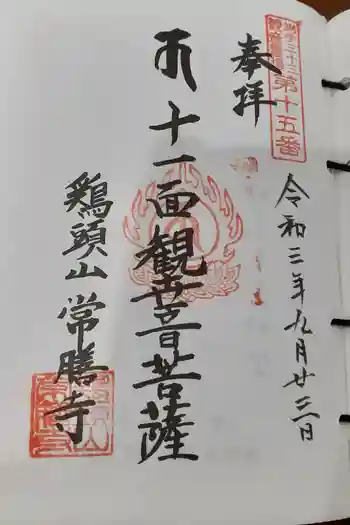 奉拝
第十五番
令和三年九月廿三日
十一面観世音菩薩
鶏頭山 常勝寺